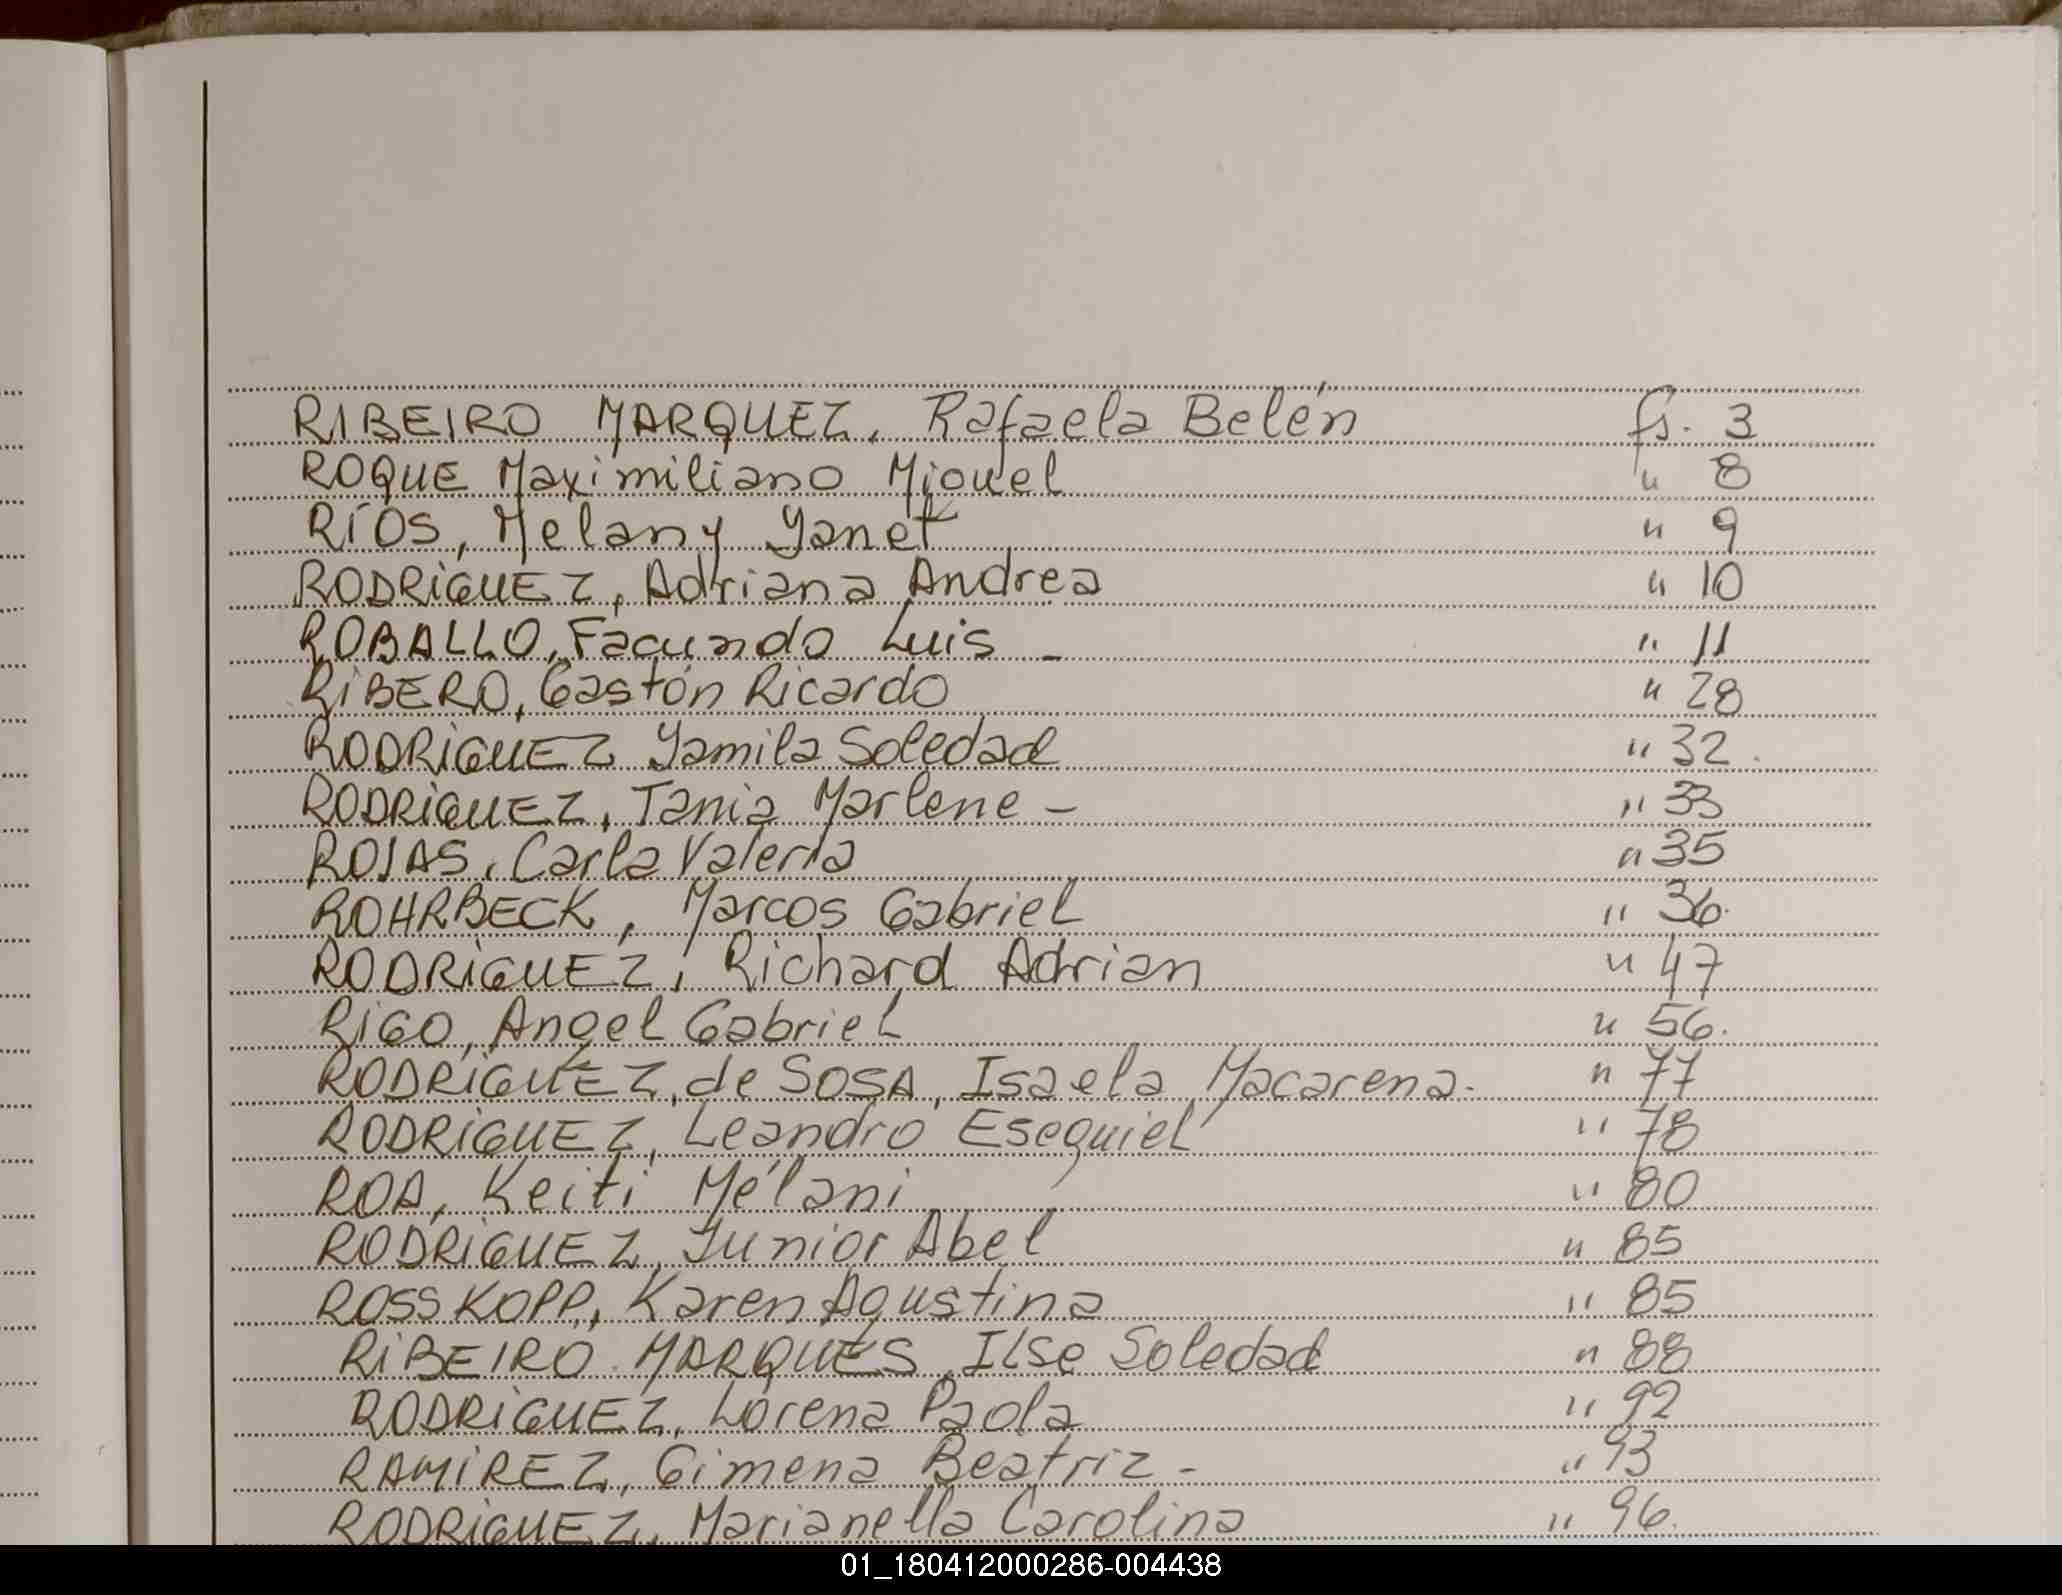 RIBEIRO MARQUEZ, Rafaela Belén fs. 3
ROQUE Maximiliano Miguel " 8
RÍOS, Melany Yanet " 9
RODRIGUEZ, Adriana Andrea " 10
ROBALLO, Facundo Luis - " 11
RIBERO, Gastón Ricardo " 28
RODRIGUEZ Yamila Soledad " 32.
RODRIGUEZ, Tania Marlene - " 33
ROJAS, Carla Valeria " 35
ROHRBECK, Marcos Gabriel " 36.
RODRIGUEZ, Richard Adrian " 47
RIGO, Angel Gabriel " 56.
RODRIGUEZ, de SOSA, Isaela Macarena. " 77
RODRIGUEZ, Leandro Esequiel " 78
ROA, Keiti Mélani " 80
RODRIGUEZ, Junior Abel " 85
ROSSKOPP, Karen Agustina " 85
RIBEIRO MARQUES, Ilse Soledad " 88
RODRIGUEZ, Lorena Paola " 92
RAMIREZ, Gimena Beatriz - " 93
RODRIGUEZ, Marianella Carolina " 96.
01_180412000286-004438